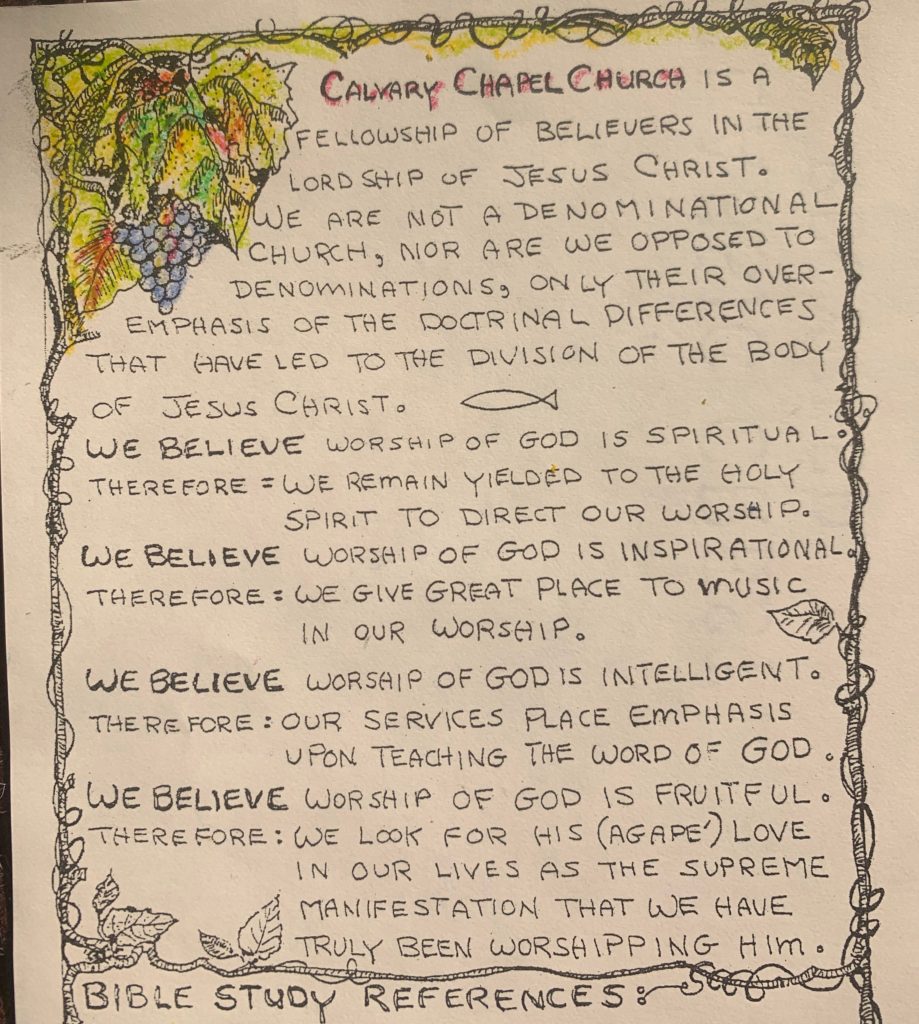 CALVARY CHAPEL CHURCH IS A
FELLOWSHIP OF BELIEVERS IN THE
LORDSHIP OF JESUS CHRIST.
WE ARE NOT A DENOMINATIONAL
CHURCH, NOR ARE WE OPPOSED TO
DENOMINATIONS, ONLY THEIR OVER-
EMPHASIS OF THE DOCTRINAL DIFFERENCES
THAT HAVE LED TO THE DIVISION OF THE BODY
OF JESUS CHRIST.
WE BELIEVE WORSHIP OF GOD IS SPIRITUAL.
THEREFORE = WE REMAIN YIELDED TO THE HOLY
SPIRIT TO DIRECT OUR WORSHIP.
WE BELIEVE WORSHIP OF GOD IS INSPIRATIONAL.
THEREFORE: WE GIVE GREAT PLACE TO MUSIC
IN OUR WORSHIP.
WE BELIEVE WORSHIP OF GOD IS INTELLIGENT.
THEREFORE: OUR SERVICES PLACE EMPHASIS
UPON TEACHING THE WORD OF GOD.
WE BELIEVE WORSHIP OF GOD IS FRUITFUL.
THEREFORE: WE LOOK FOR HIS (AGAPE') LOVE
IN OUR LIVES AS THE SUPREME
MANIFESTATION THAT WE HAVE
TRULY BEEN WORSHIPPING HIM.
BIBLE STUDY REFERENCES: